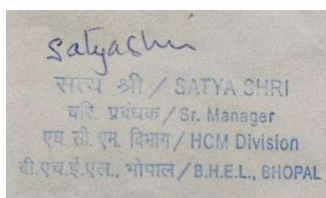 Satyashri
सत्य श्री / SATYA SHRI
वरि. प्रबंधक / Sr. Manager
एच. सी. एम. विभाग / HCM Division
बी.एच.ई.एल., भोपाल / B.H.E.L., BHOPAL